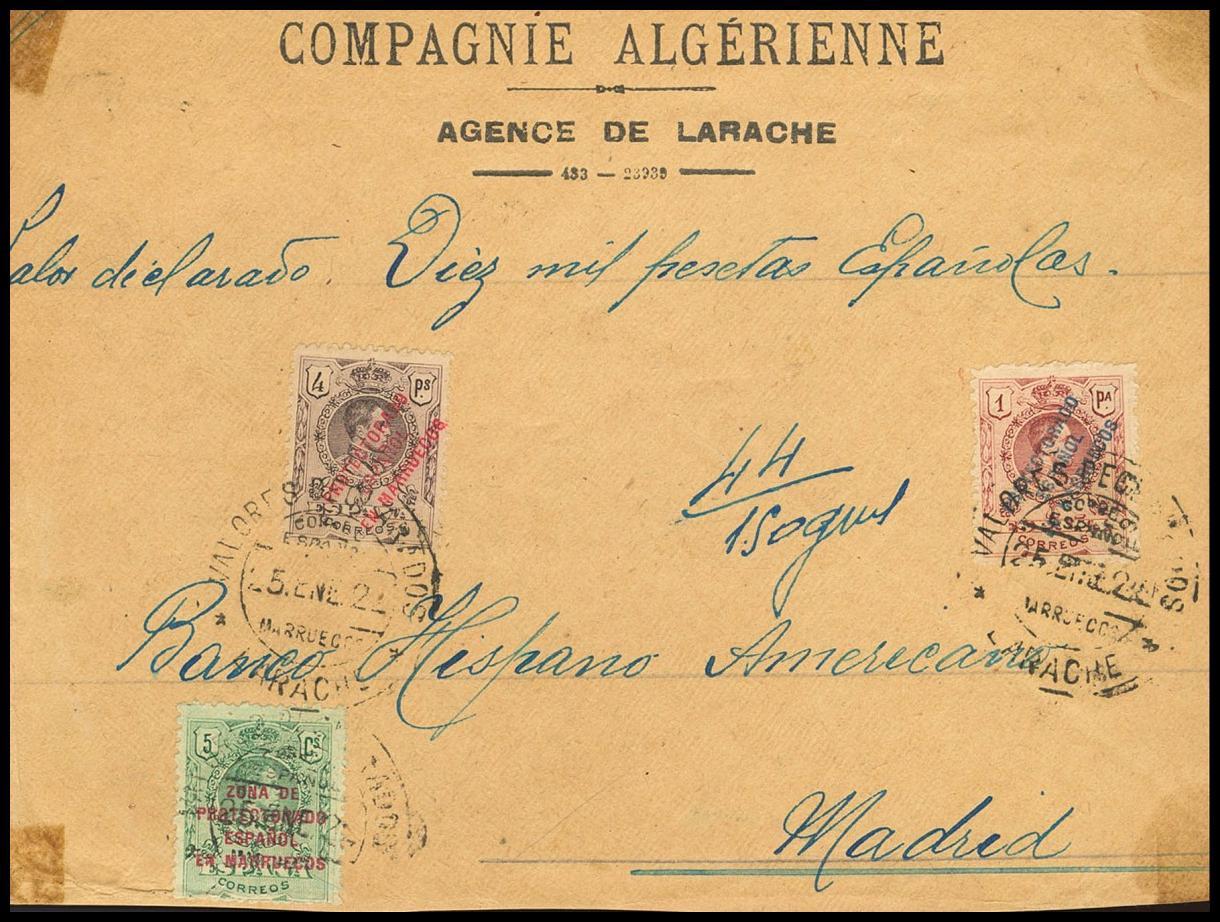 COMPAGNIE ALGÉRIENNE
AGENCE DE LARACHE
433 — 23939
Valor déclarado. Diez mil pesetas Españolas.
4 Ps
PROTECTORADO
EN MARRUECOS
CORREOS
1 PA
PROTECTORADO
ESPAÑOL
EN MARRUECOS
CORREOS
44
150 grs
VALORES DECLARADOS
25.ENE.22
MARRUECOS
LARACHE
VALORES DECLARADOS
CORREOS
ESPAÑA
25.ENE.22
MARRUECOS
LARACHE
Banco Hispano Americano
5 Cs
ZONA DE
PROTECTORADO
ESPAÑOL
EN MARRUECOS
ESPAÑA
CORREOS
25.ENE
Madrid